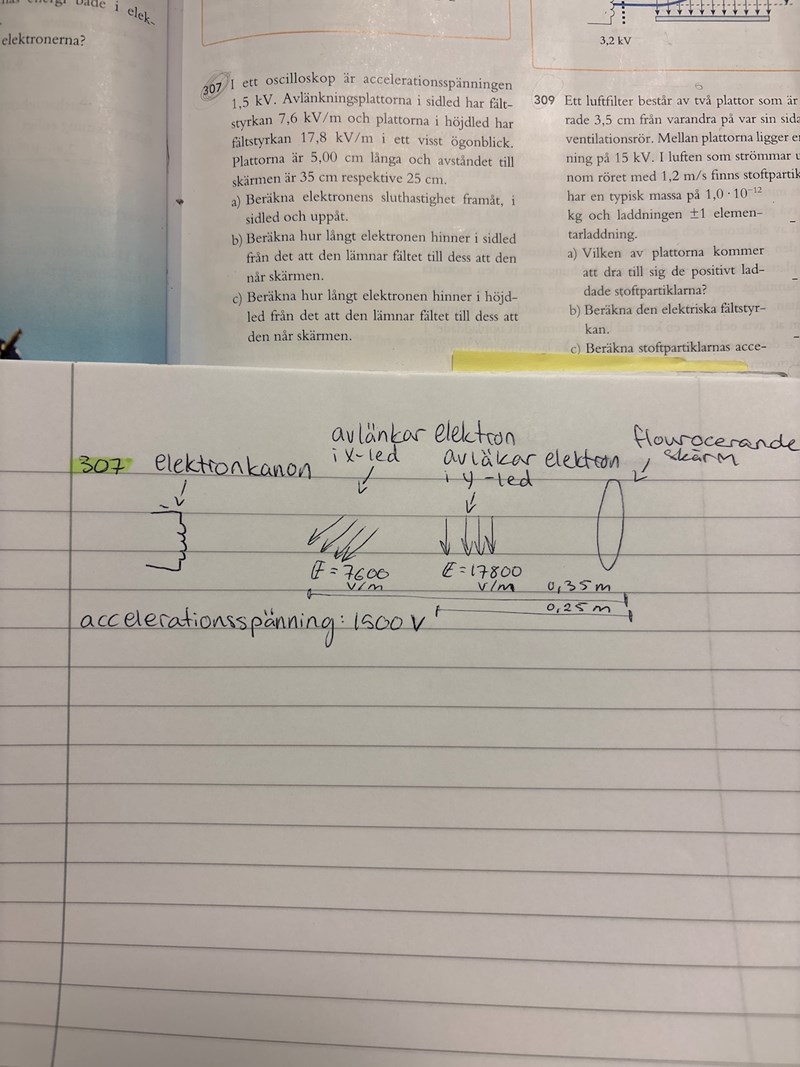 elek-
elektronerna?
3,2 kV
307 I ett oscilloskop är accelerationsspänningen
1,5 kV. Avlänkningsplattorna i sidled har fält-
styrkan 7,6 kV/m och plattorna i höjdled har
fältstyrkan 17,8 kV/m i ett visst ögonblick.
Plattorna är 5,00 cm långa och avståndet till
skärmen är 35 cm respektive 25 cm.
a) Beräkna elektronens sluthastighet framåt, i
sidled och uppåt.
b) Beräkna hur långt elektronen hinner i sidled
från det att den lämnar fältet till dess att den
når skärmen.
c) Beräkna hur långt elektronen hinner i höjd-
led från det att den lämnar fältet till dess att
den når skärmen.
309 Ett luftfilter består av två plattor som är
rade 3,5 cm från varandra på var sin sida
ventilationsrör. Mellan plattorna ligger
ning på 15 kV. I luften som strömmar
nom röret med 1,2 m/s finns stoftpartik
har en typisk massa på 1,0 · 10⁻¹²
kg och laddningen ±1 elemen-
tarladdning.
a) Vilken av plattorna kommer
att dra till sig de positivt lad-
dade stoftpartiklarna?
b) Beräkna den elektriska fältstyr-
kan.
c) Beräkna stoftpartiklarnas acce-
307 elektronkanon
avlänkar elektron
i x-led
avläkar elektron
i y-led
flourocerande
skärm
E = 7600
V/m
E = 17800
V/m
0,35 m
0,25 m
accelerationsspänning: 1500 V